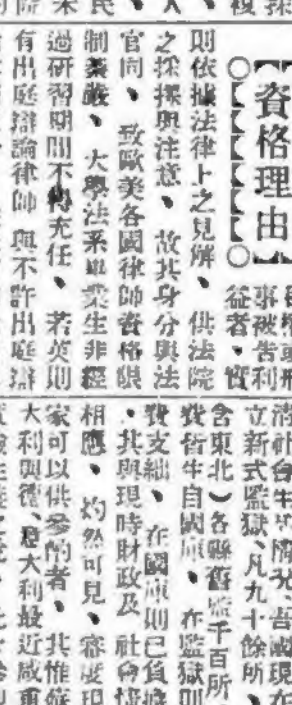 資格理由
則依據法律上之見解、供法院
之採擇與注意、故其身分與法
官同、致歐美各國律師資格限
制綦嚴、大學法系畢業生非經
過研習期間不得充任、若英則
有出庭辯論律師與不許出庭辯
事被告利
益者、實
立新式監獄、凡九十餘所、
含東北)各縣舊監千百所
費皆牛自國庫、在監獄則
費支絀、在國庫則已負
、其與現時財政及社會情
相應、灼然可見、審度現
家可以供參酌者、其惟
大利與德、意大利最近咸重